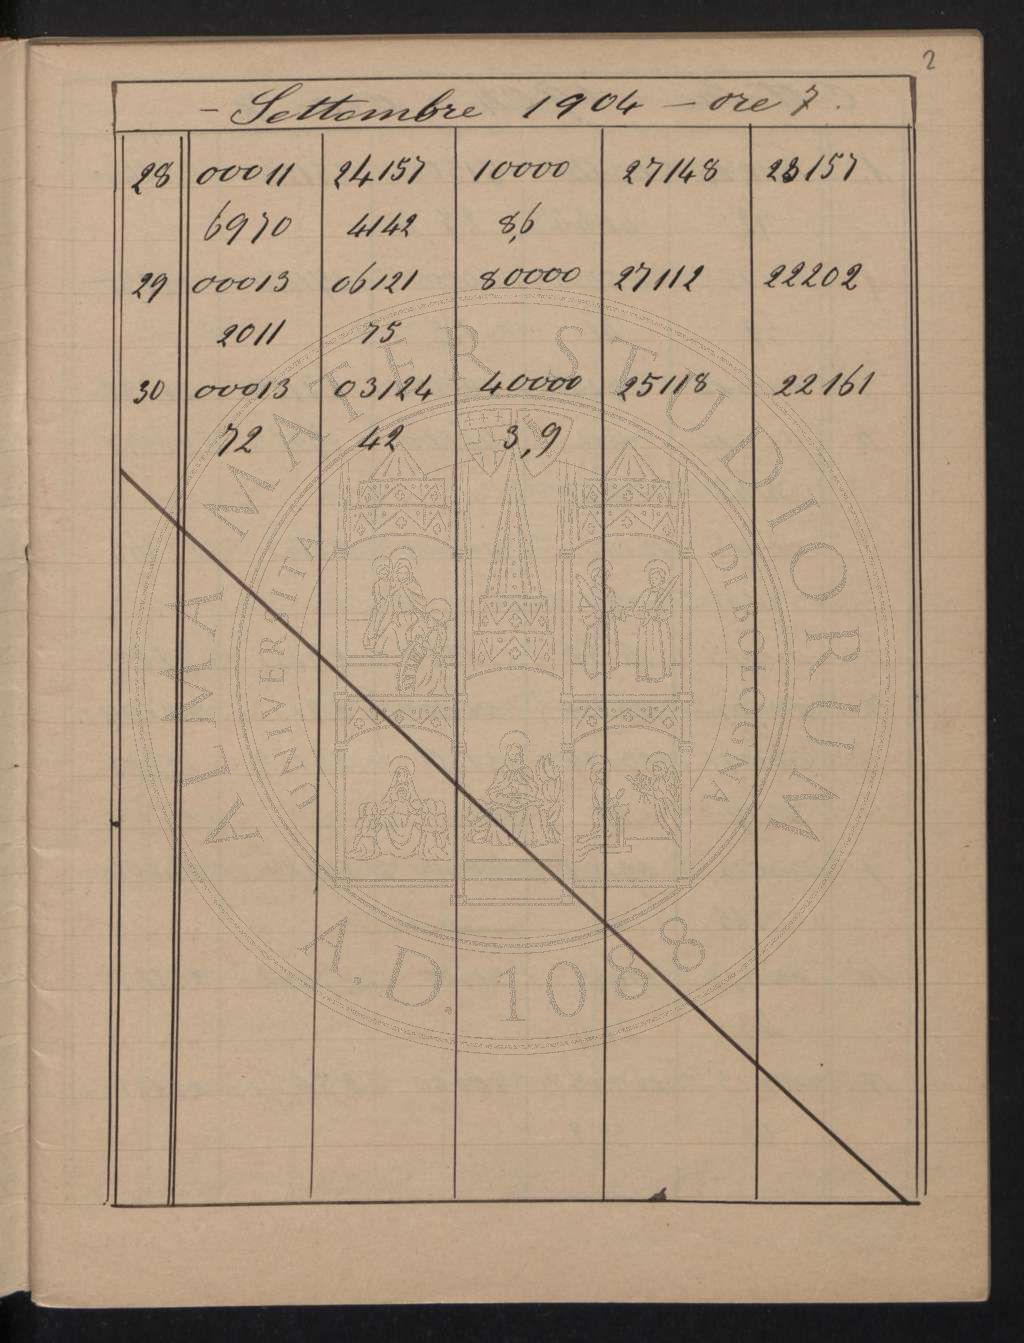 2
– Settembre 1904 – ore 7.
28 00011 24157 10000 27148 23157
6970 4142 8,6
29 00013 06121 80000 27112 22202
2011 75
30 00013 03124 40000 25118 22161
72 42 3,9
ALMA MATER STUDIORUM
UNIVERSITA DI BOLOGNA
A.D. 1088